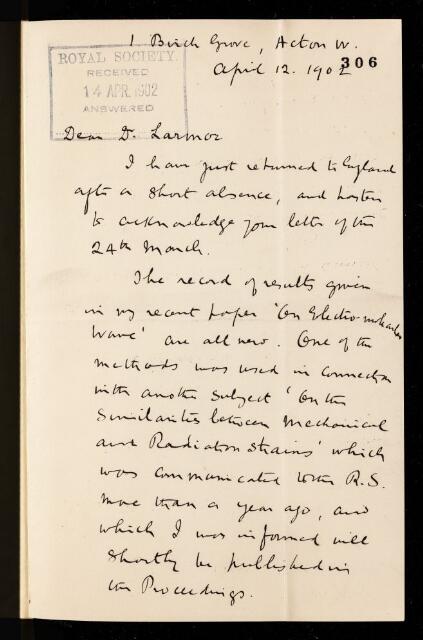 1 Birch Grove, Acton W.
April 12. 1902
306
ROYAL SOCIETY.
RECEIVED
14 APR. 1902
ANSWERED
Dear Dr. Larmor
I have just returned to England
after a short absence, and hasten
to acknowledge your letter of the
24th March.
The record of results given
in my recent paper 'On Electro-mechanical
Wave' are all new. One of the
methods was used in connection
with another subject 'On the
Similarities between Mechanical
and Radiation Strains' which
was communicated to the R.S.
more than a year ago, and
which I was informed will
shortly be published in
the Proceedings.